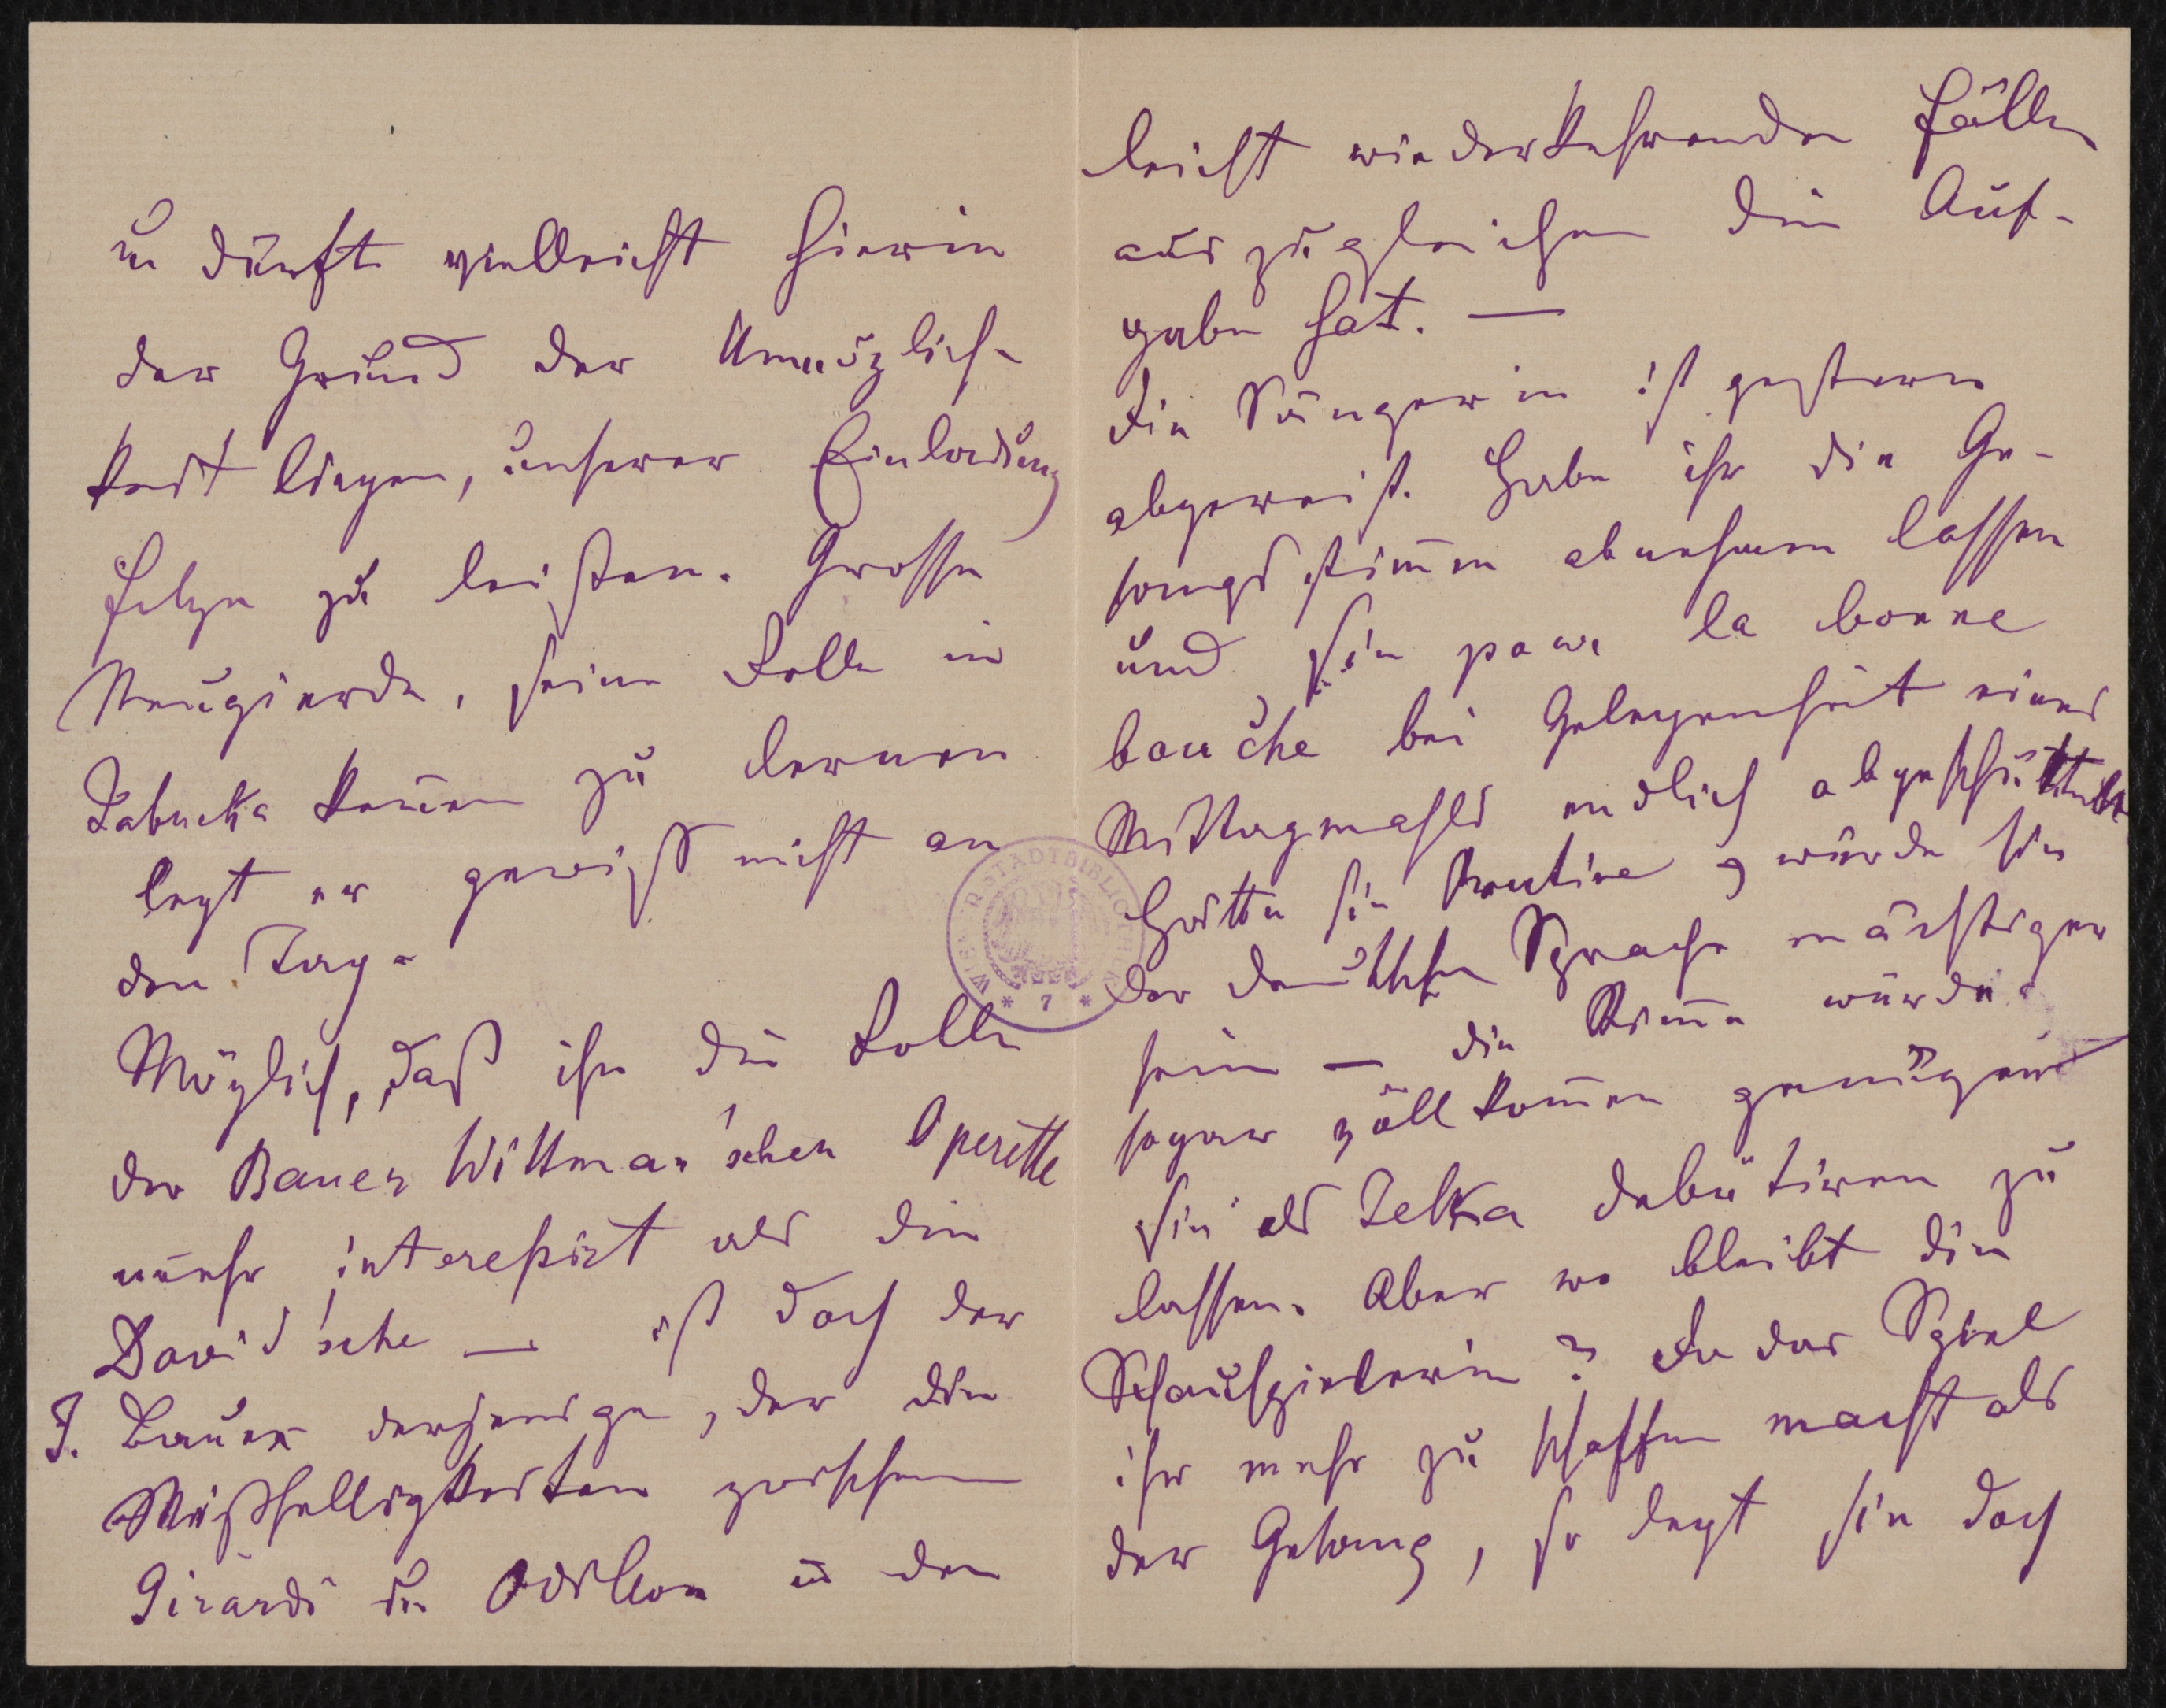 u dürfte vielleicht hierin
der Grund der Unmöglich-
keit liegen, unserer Einladung
Folge zu leisten. Grosse
Neugierde, seine Rolle in
Jabuka kennen zu lernen
legt er gewiß nicht an
den Tag.
Möglich, daß ihn die Rolle
der Bauer Wittman'schen Operette
mehr interessirt als die
David'sche — ist doch der
J. Bauer derjenige, der die
Mißhelligkeiten zwischen
Girardi der Odilon u den
leicht wiederkehrenden Fällen
auszugleichen die Auf-
gabe hat. —
Die Sängerin ist gestern
abgereist. Habe ihr die Ge-
sangsstimme abnehmen lassen
und sie pour la bonne
bouche bei Gelegenheit eines
Mittagmahls endlich abgeschüttelt
Hätte sie Routine, würde sie
der deutschen Sprache mächtiger
sein — die Stimme würde
sogar vollkommen genügen
sie als Jelka debütiren zu
lassen. Aber wo bleibt die
Schauspielerin? Da das Spiel
ihr mehr zu schaffen macht als
der Gesang, so legt sie doch
WIENER STADTBIBLIOTHEK
* 7 *